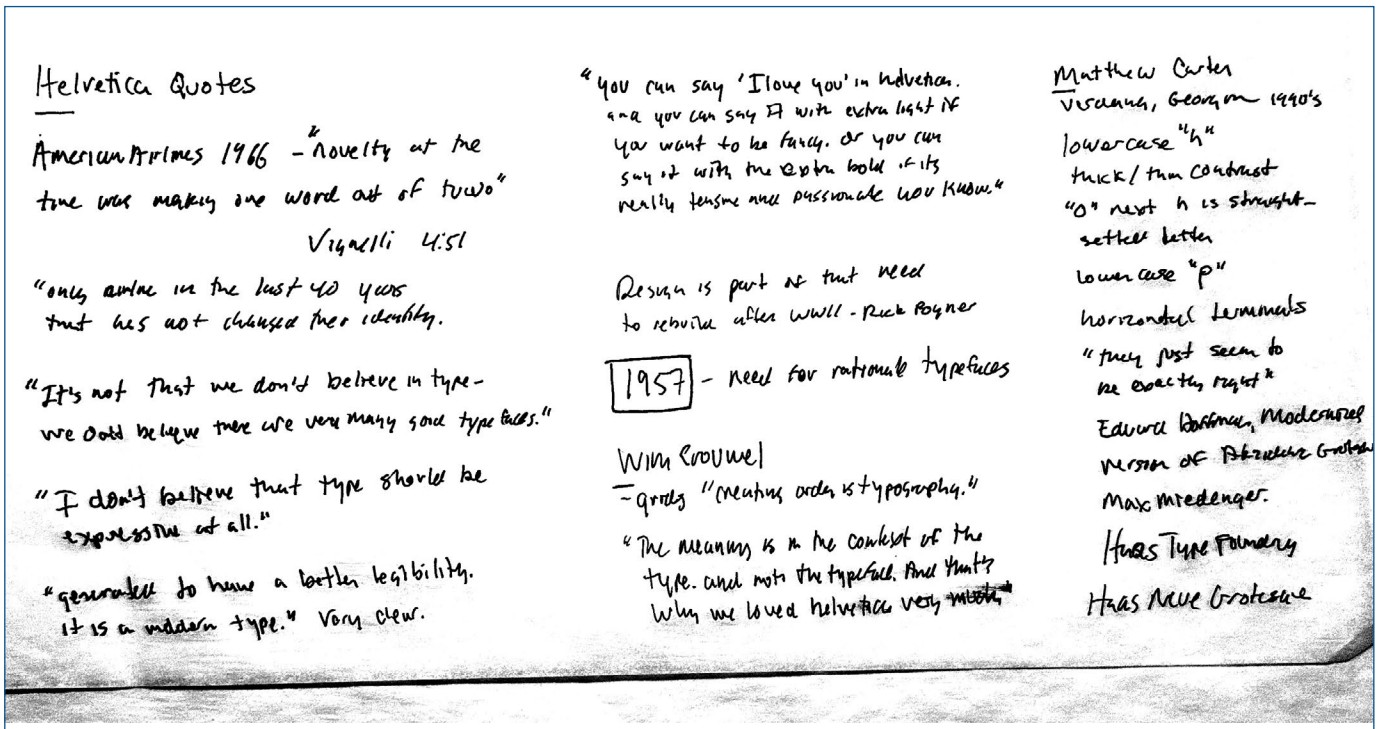 Helvetica Quotes
American Airlines 1966 - "novelty at the
time was making one word out of two"
Vignelli 4:51
"only airline in the last 40 years
that has not changed their identity.
"It's not that we don't believe in type -
we don't believe there are very many good type faces."
"I don't believe that type should be
expressive at all."
"generated to have a better legibility.
it is a modern type." Very clear.
"you can say 'I love you' in helvetica.
and you can say it with extra light if
you want to be fancy. or you can
say it with the extra bold if its
really tensine and passionate you know."
Design is part of that need
to rebuild after WWII - Rick Poyner
1957 - need for rationale typefaces
Wim Crouwel
- grids "creating order is typography."
"The meaning is in the context of the
type. and not the typeface. And that's
why we loved helvetica very
Matthew Carter
Verdana, Georgia 1990's
lowercase "h"
thick / thin contrast
"o" next h is straight-
letter
lowercase "p"
horizontal terminals
"they just seem to
be exactly right"
Edward Hoffman, Modernized
version of Akzidenz Grotesk
Max Miedenger.
Haas Type Foundry
Haas Neue Grotesque